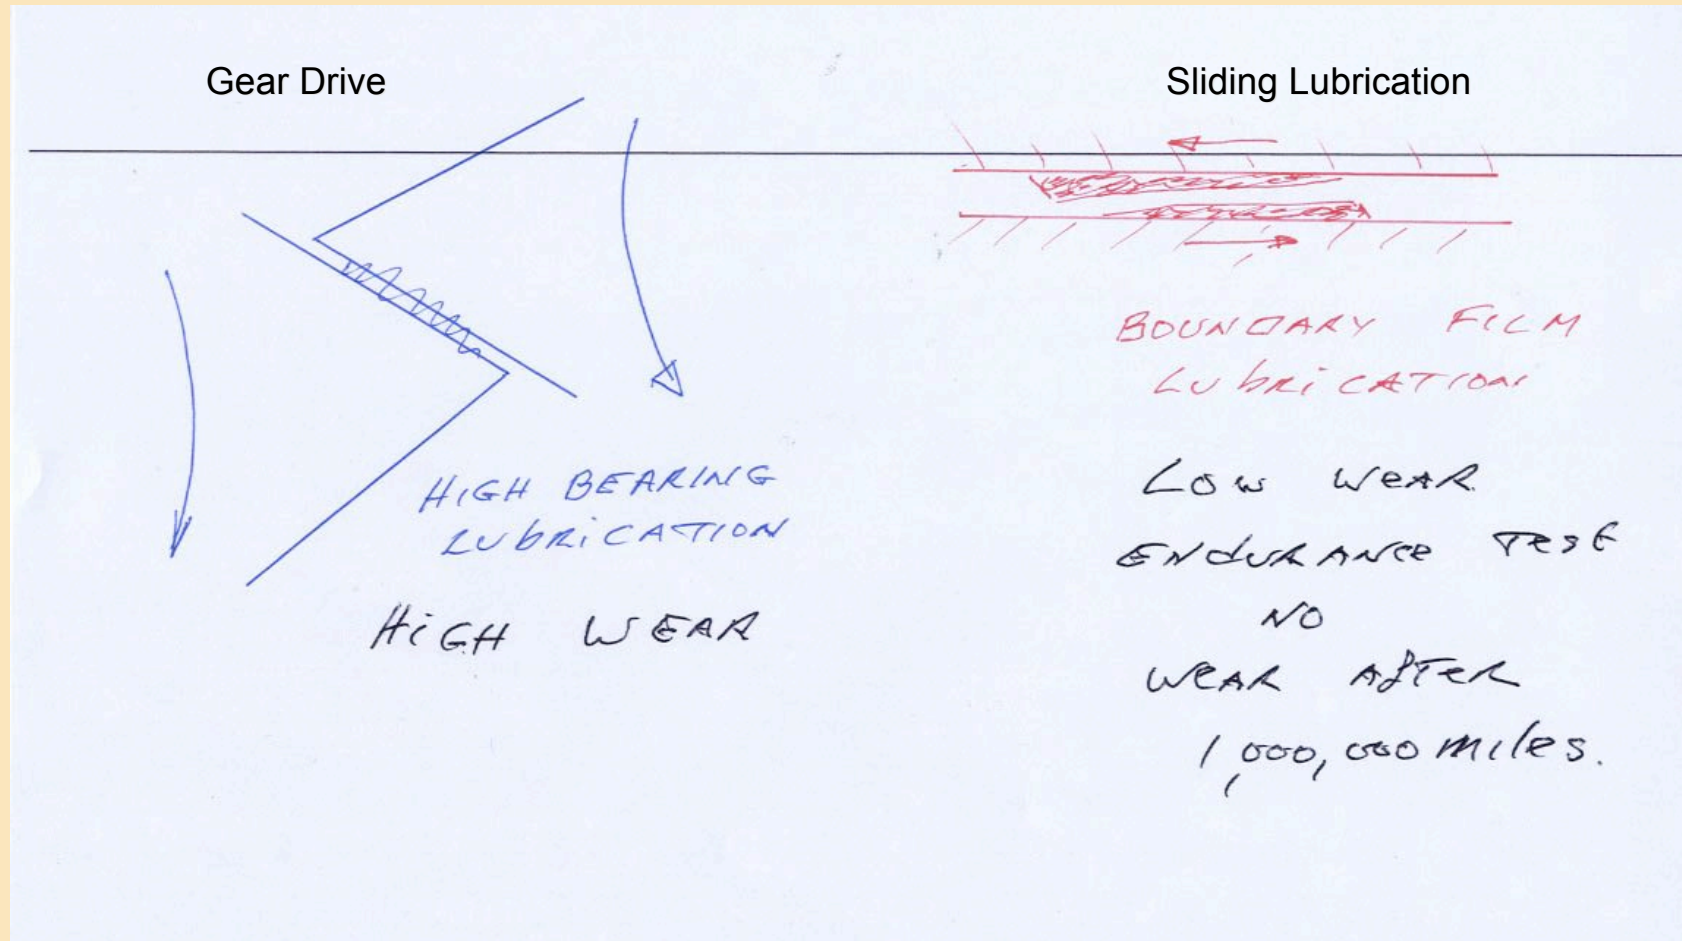 Gear Drive
Sliding Lubrication
HIGH BEARING
LUBRICATION
HIGH WEAR
BOUNDARY FILM
LUBRICATION
LOW WEAR
ENDURANCE TEST
NO
WEAR AFTER
1,000,000 MILES.